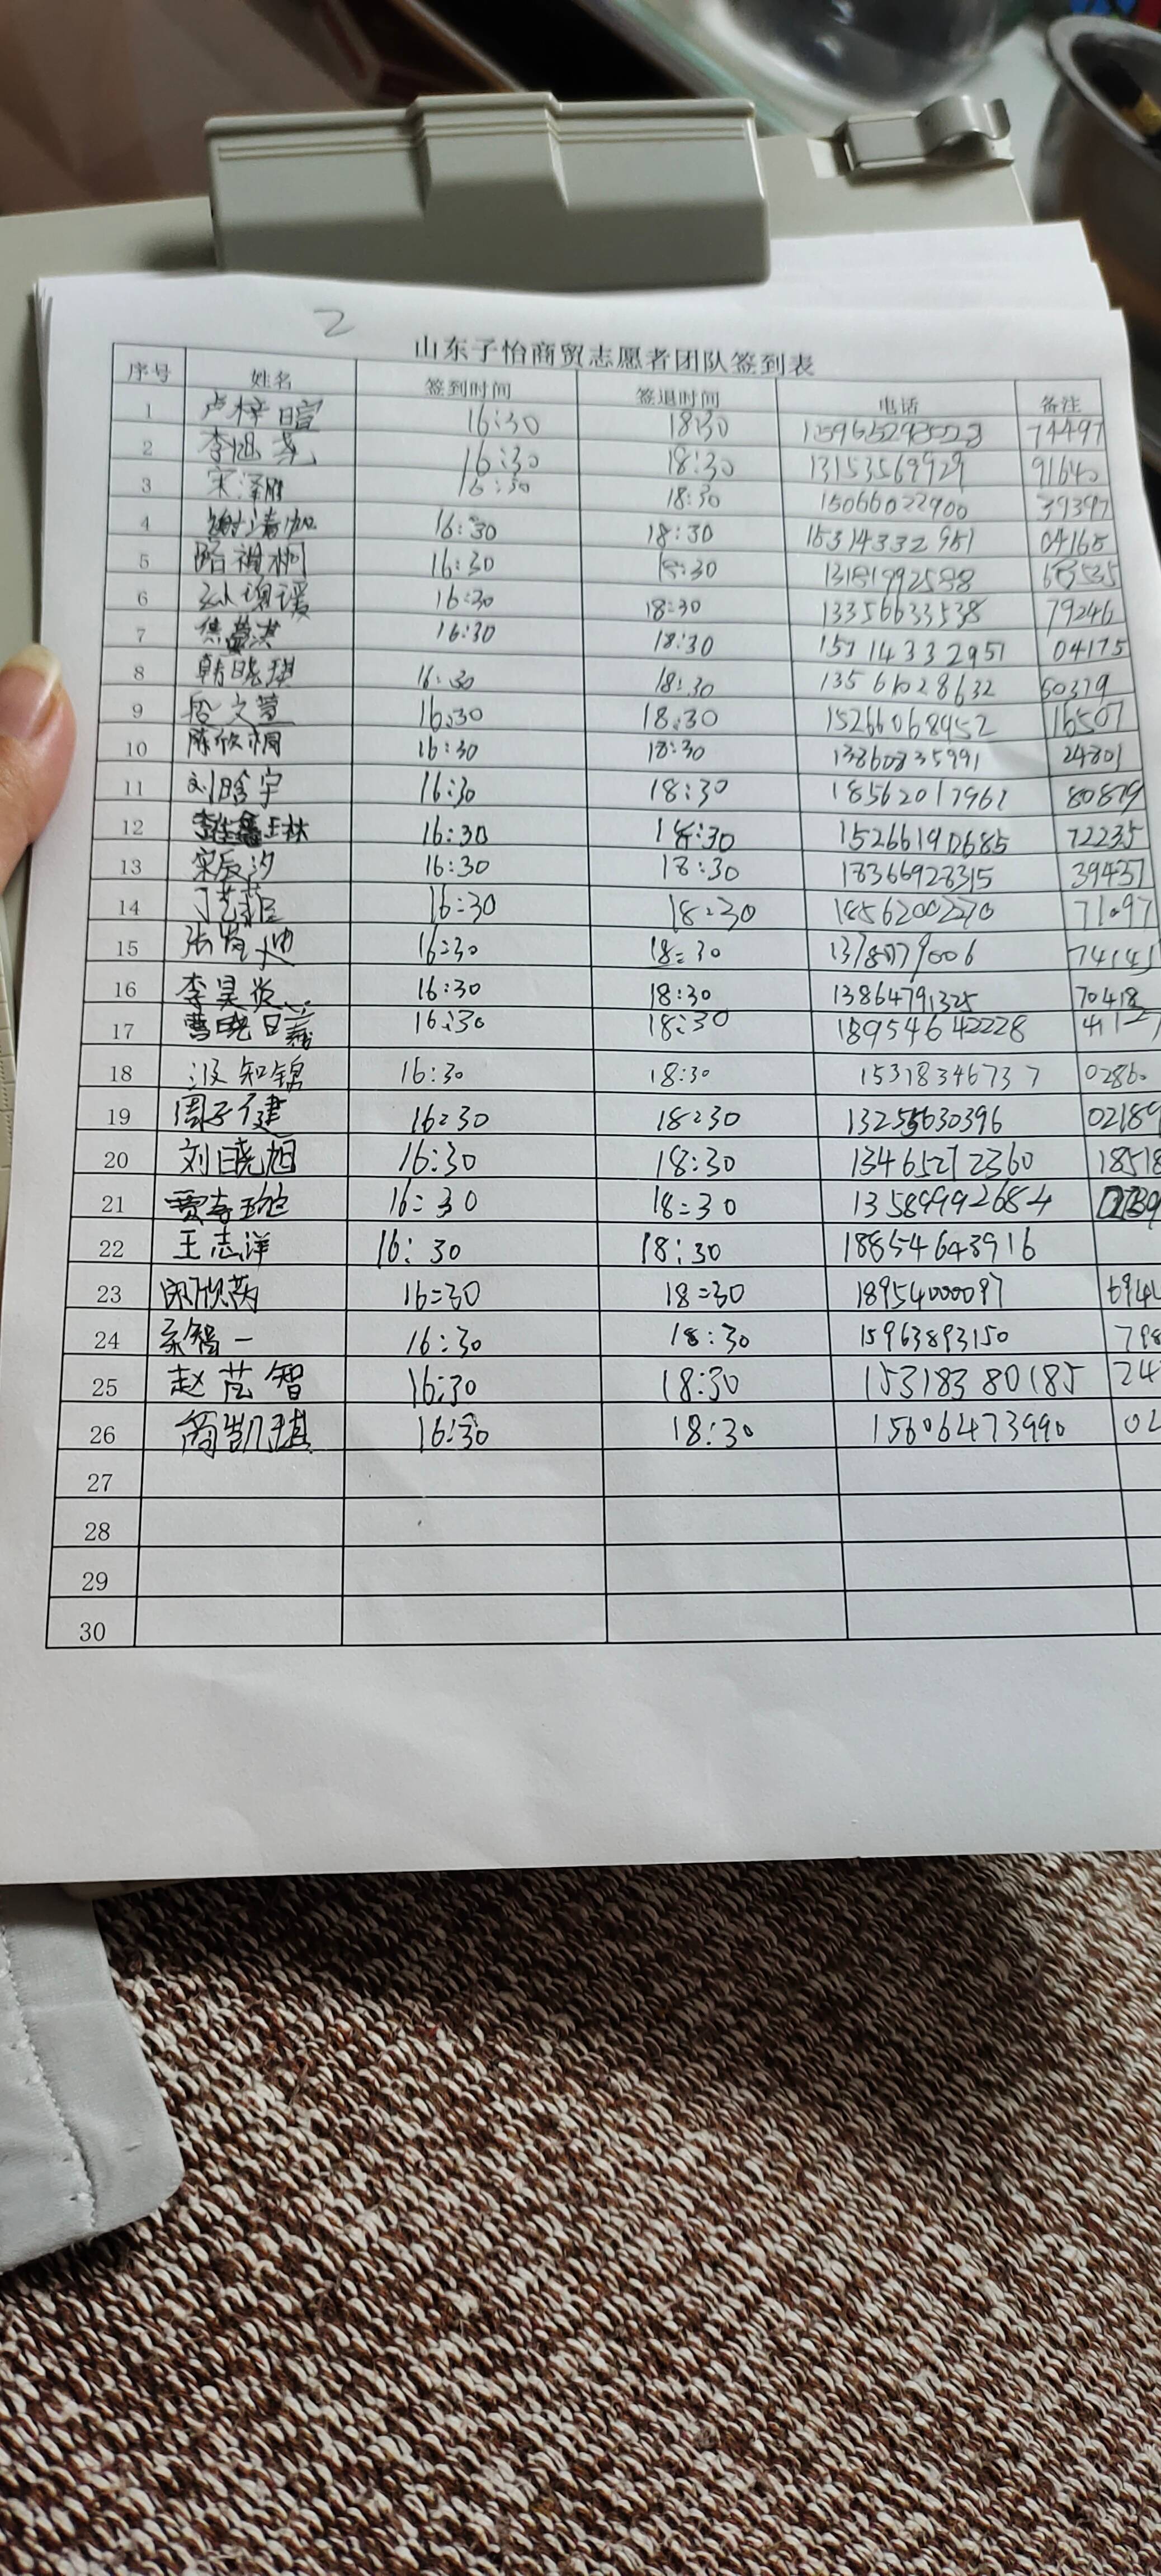 2
山东子怡商贸志愿者团队签到表
序号 姓名 签到时间 签退时间 电话 备注
1 卢梓暄 16:30 18:30 74497
2 李旭尧 16:30 18:30 13153569929 91640
3 宋泽 16:30 18:30 15066022900 39397
4 谢清加 16:30 18:30 15314332951 04165
5 16:30 18:30 13181992588
6 16:30 18:30 13356633538 79246
7 焦 16:30 18:30 04175
8 韩晓琪 16:30 18:30 13561028632 50379
9 段文萱 16:30 18:30 15266068952 16507
10 陈欣桐 16:30 18:30 13860835991 24801
11 刘晗宇 16:30 18:30 18562017961 80879
12 16:30 18:30 15266190685 72235
13 宋辰汐 16:30 18:30 18366928315 39437
14 丁艺 16:30 18:30 18562002270 71097
15 张 16:30 18:30 74141
16 李昊 16:30 18:30 13864791325 70418
17 曹晓曦 16:30 18:30 18954642228
18 知锦 16:30 18:30 15318346737 02860
19 周子健 16:30 18:30 13255630396 02189
20 刘晓旭 16:30 18:30 13465272360 18518
21 贾 16:30 18:30 13589992684
22 王志洋 16:30 18:30 18854643916
23 16:30 18:30 18954000097 694
24 智一 16:30 18:30 15963893150 798
25 赵芸智 16:30 18:30 15318380185 24
26 凯琪 16:30 18:30 15606473990 02
27
28
29
30